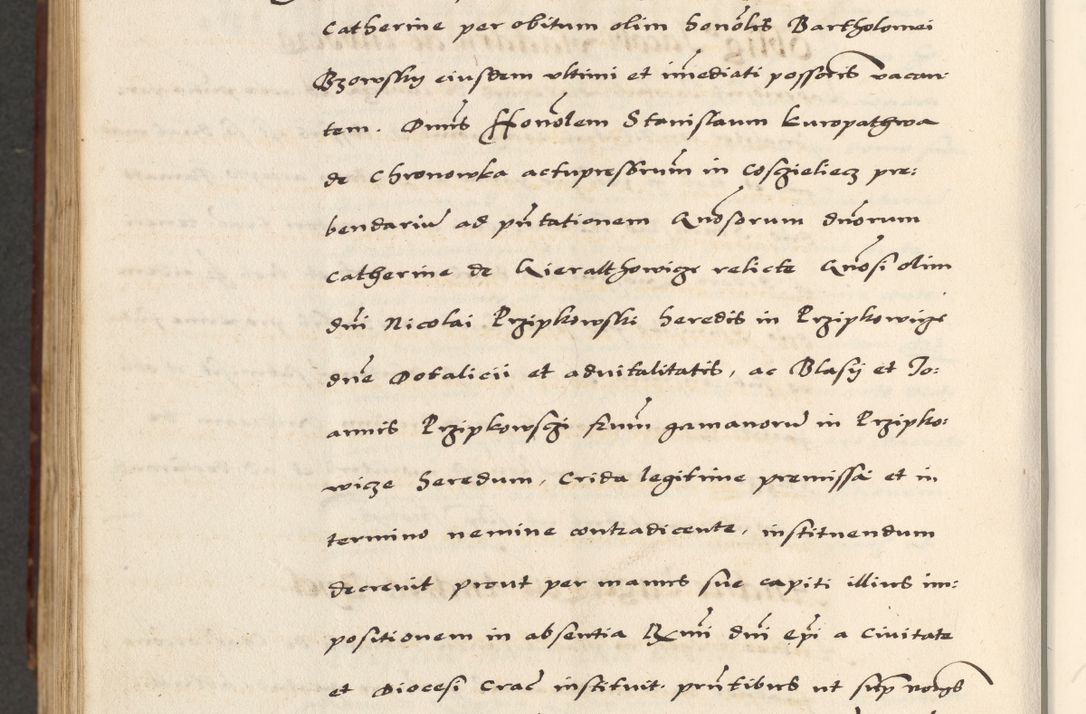 Catherine per obitum olim honólis Bartholomei
Bzowsky eiusdem ultimi et imediati possoris vacan-
tem. Dnus Honólem Stanislaum Kuropathwa
de Chronowka actu pressrum in Cosczieliecz pre:
bendariu ad pntationem Gnosorum dnorum
Catherine de Gieralthowicze relicte Gnosi olim
dni Nicolai Przipkowski heredis in Przipkowicze
dne dotalicii et aduitalitatis, ac Blasy et Jo:
annis Przipkowsczi frum germanoru in Przipko:
wicze heredum, Crida legitime premissa et in
termino nemine contradicente, instituendum
decreuit prout per manus sue capiti illius im:
positionem in absentia Rmi dni epi a Ciuitate
et Diocesi Crac instituit. pntibus ut sup